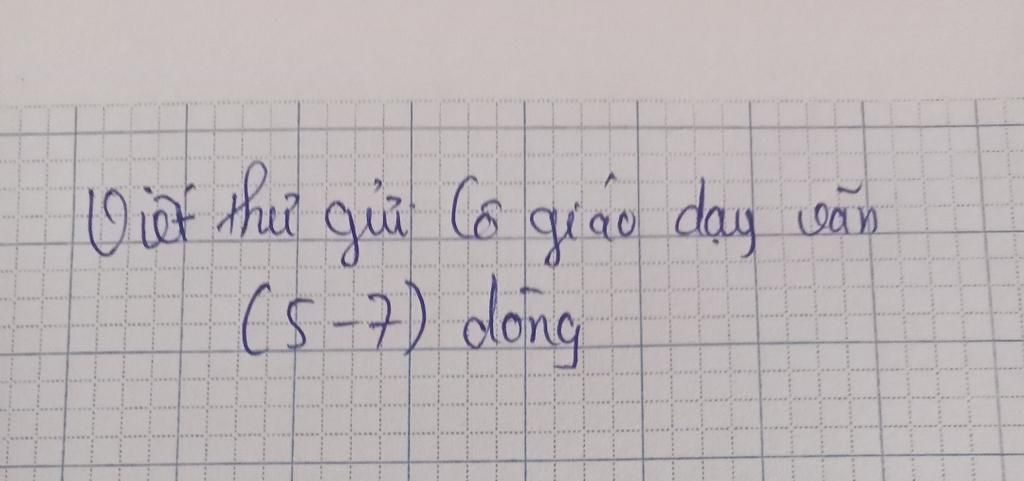 Viết thư gửi Cô giáo dạy văn
(5-7) dòng